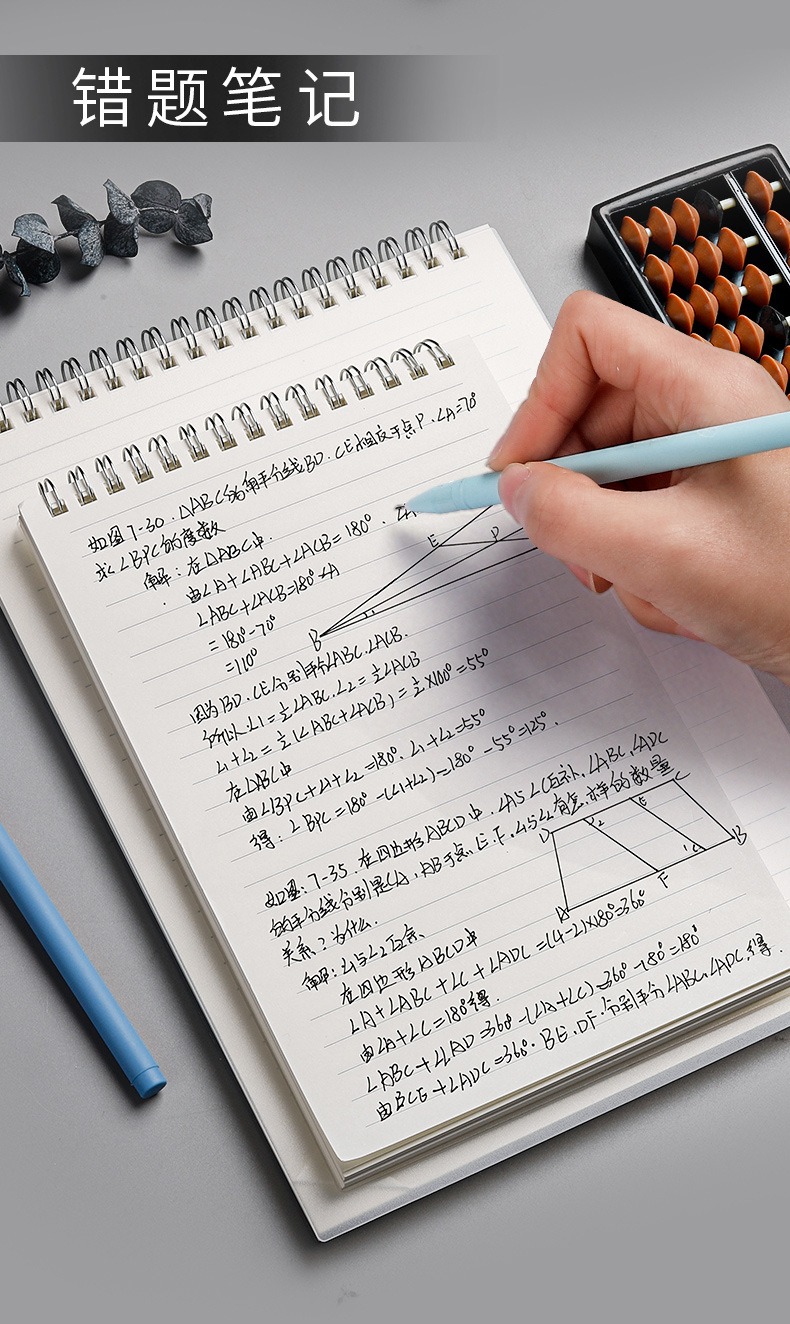 错题笔记
如图7-30.△ABC的角平分线BD.CE相交于点P.∠A=70°
求∠BPC的度数
解:在△ABC中.
由∠A+∠ABC+∠ACB=180°.∠A
∠ABC+∠ACB=180°-∠A
=180°-70°
=110°
因为BD.CE分别平分∠ABC.∠ACB.
所以∠1=½∠ABC.∠2=½∠ACB
∠1+∠2=½(∠ABC+∠ACB)=½×100°=55°
在△ABC中
由∠BPC+∠1+∠2=180°.∠1+∠2=55°
得:∠BPC=180°-(∠1+∠2)=180°-55°=125°.
E
P
B
如图:7-35.在四边形ABCD中.∠A与∠C互补.∠ABC,∠ADC
的平分线分别是CA,AB于点E.F.∠1与∠2有怎样的数量
关系?为什么.
D
2
E
C
1
B
A
F
解:∠1与∠2互余.
在四边形ABCD中
∠A+∠ABC+∠C+∠ADC=(4-2)×180°=360°
由∠A+∠C=180°得.
∠ABC+∠LAD=360°-(∠A+∠C)=360°-180°=180°
由BCE+∠ADC=360°.BE.DF.分别平分∠ABC,∠ADC,得.